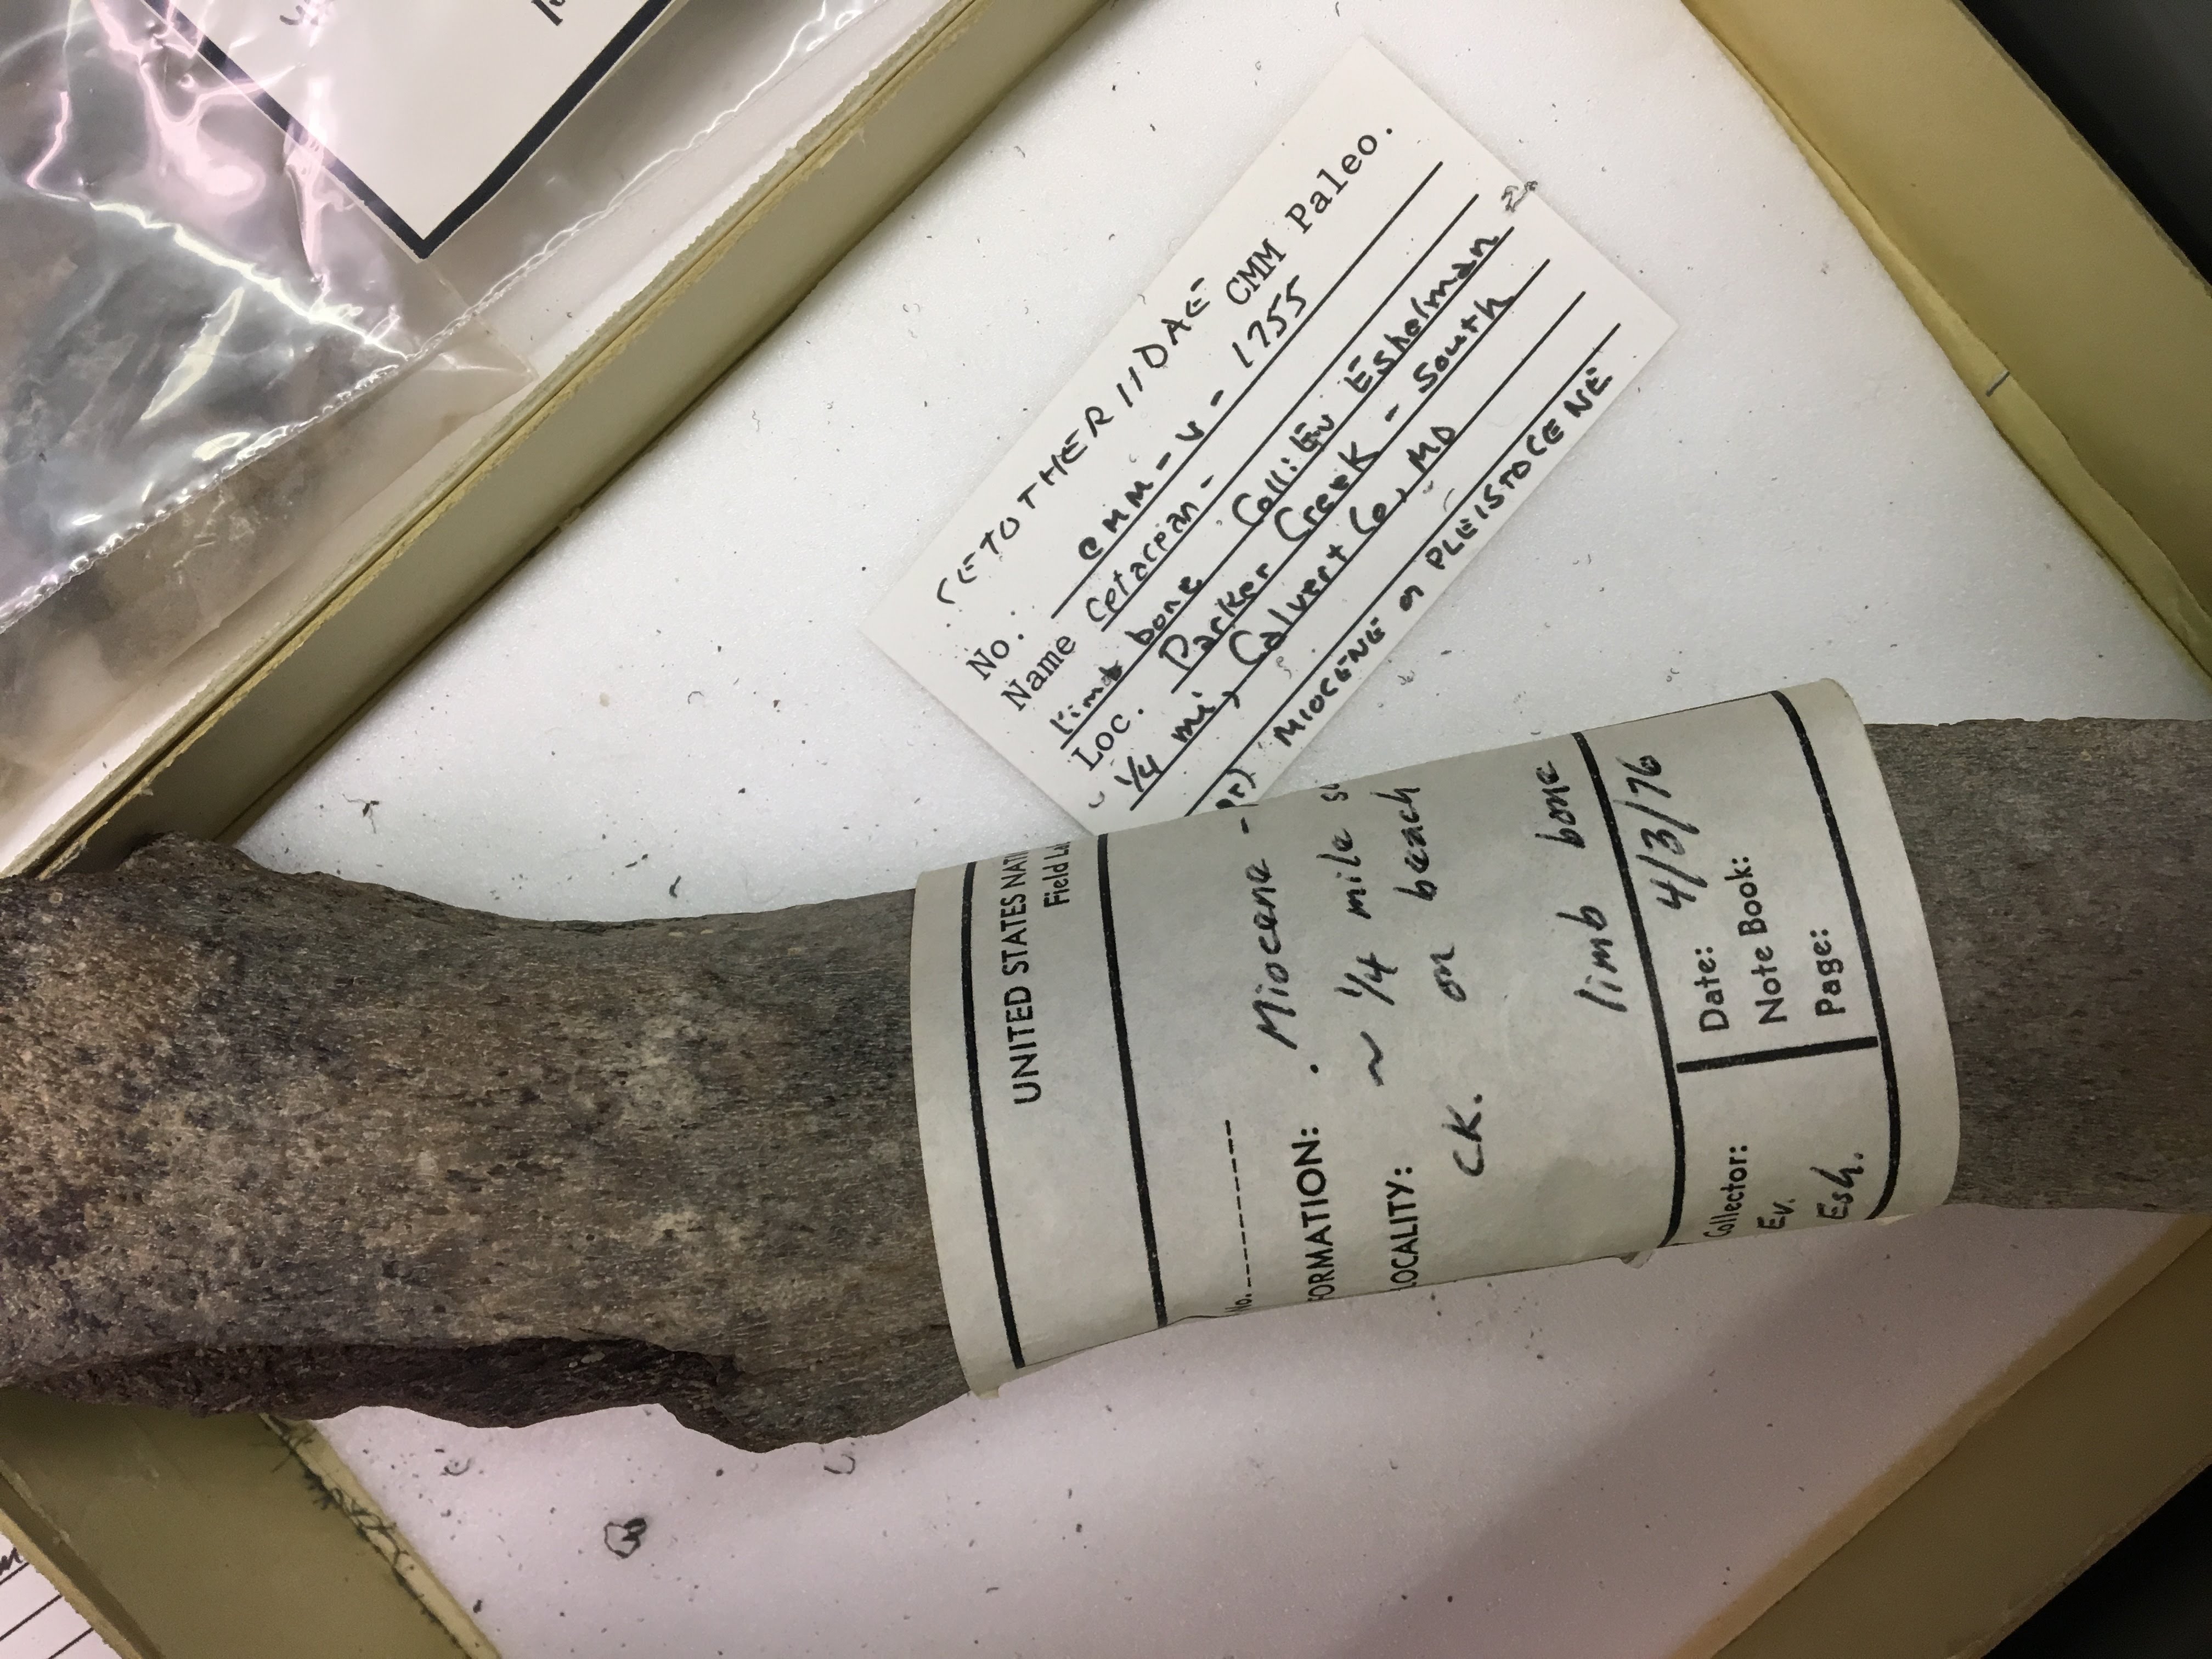 UNITED STATES NAT
Field
No.
FORMATION: . Miocene -
LOCALITY: ~ 1/4 mile
CK. on beach
limb bone
Collector:
Ev.
Esh.
Date: 4/3/76
Note Book:
Page:
CETOTHERIIDAE
CMM Paleo.
No. CMM-V-1755
Name Cetacean -
limb bone Coll: Ev Eshelman
Loc. Parker Creek - South
1/4 mi, Calvert Co, MD
MIOCENE or PLEISTOCENE